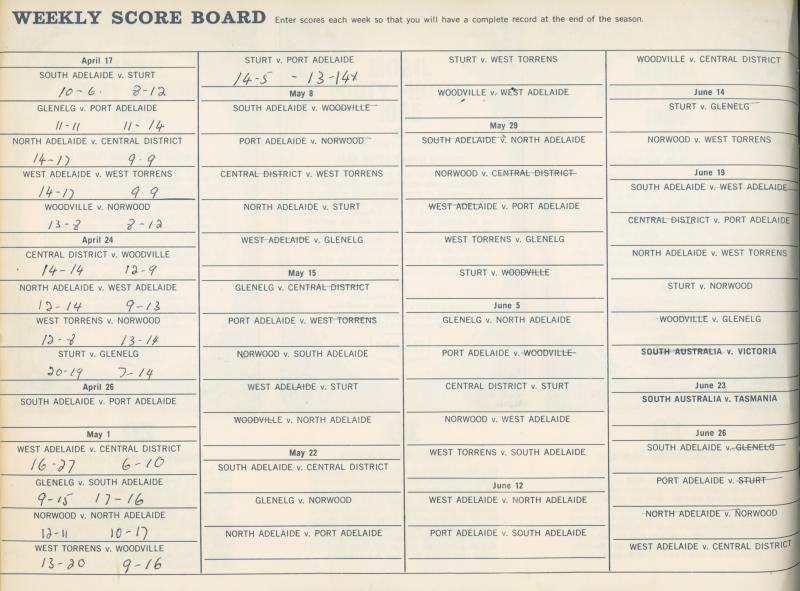 WEEKLY SCORE BOARD Enter scores each week so that you will have a complete record at the end of the season.
April 17
SOUTH ADELAIDE v. STURT
10-6 8-12
GLENELG v. PORT ADELAIDE
11-11 11-14
NORTH ADELAIDE v. CENTRAL DISTRICT
14-17 9-9
WEST ADELAIDE v. WEST TORRENS
14-17 9 9
WOODVILLE v. NORWOOD
13-8 8-12
April 24
CENTRAL DISTRICT v. WOODVILLE
14-14 12-9
NORTH ADELAIDE v. WEST ADELAIDE
12-14 9-13
WEST TORRENS v. NORWOOD
12-8 13-14
STURT v. GLENELG
20-19 7-14
April 26
SOUTH ADELAIDE v. PORT ADELAIDE
May 1
WEST ADELAIDE v. CENTRAL DISTRICT
16-27 6-10
GLENELG v. SOUTH ADELAIDE
9-15 17-16
NORWOOD v. NORTH ADELAIDE
12-11 10-17
WEST TORRENS v. WOODVILLE
13-20 9-16
STURT v. PORT ADELAIDE
14-5 - 13-14
May 8
SOUTH ADELAIDE v. WOODVILLE
PORT ADELAIDE v. NORWOOD
CENTRAL DISTRICT v. WEST TORRENS
NORTH ADELAIDE v. STURT
WEST ADELAIDE v. GLENELG
May 15
GLENELG v. CENTRAL DISTRICT
PORT ADELAIDE v. WEST TORRENS
NORWOOD v. SOUTH ADELAIDE
WEST ADELAIDE v. STURT
WOODVILLE v. NORTH ADELAIDE
May 22
SOUTH ADELAIDE v. CENTRAL DISTRICT
GLENELG v. NORWOOD
NORTH ADELAIDE v. PORT ADELAIDE
STURT v. WEST TORRENS
WOODVILLE v. WEST ADELAIDE
May 29
SOUTH ADELAIDE v. NORTH ADELAIDE
NORWOOD v. CENTRAL DISTRICT
WEST ADELAIDE v. PORT ADELAIDE
WEST TORRENS v. GLENELG
STURT v. WOODVILLE
June 5
GLENELG v. NORTH ADELAIDE
PORT ADELAIDE v. WOODVILLE
CENTRAL DISTRICT v. STURT
NORWOOD v. WEST ADELAIDE
WEST TORRENS v. SOUTH ADELAIDE
June 12
WEST ADELAIDE v. NORTH ADELAIDE
PORT ADELAIDE v. SOUTH ADELAIDE
WOODVILLE v. CENTRAL DISTRICT
June 14
STURT v. GLENELG
NORWOOD v. WEST TORRENS
June 19
SOUTH ADELAIDE v. WEST ADELAIDE
CENTRAL DISTRICT v. PORT ADELAIDE
NORTH ADELAIDE v. WEST TORRENS
STURT v. NORWOOD
WOODVILLE v. GLENELG
SOUTH AUSTRALIA v. VICTORIA
June 23
SOUTH AUSTRALIA v. TASMANIA
June 26
SOUTH ADELAIDE v. GLENELG
PORT ADELAIDE v. STURT
NORTH ADELAIDE v. NORWOOD
WEST ADELAIDE v. CENTRAL DISTRICT